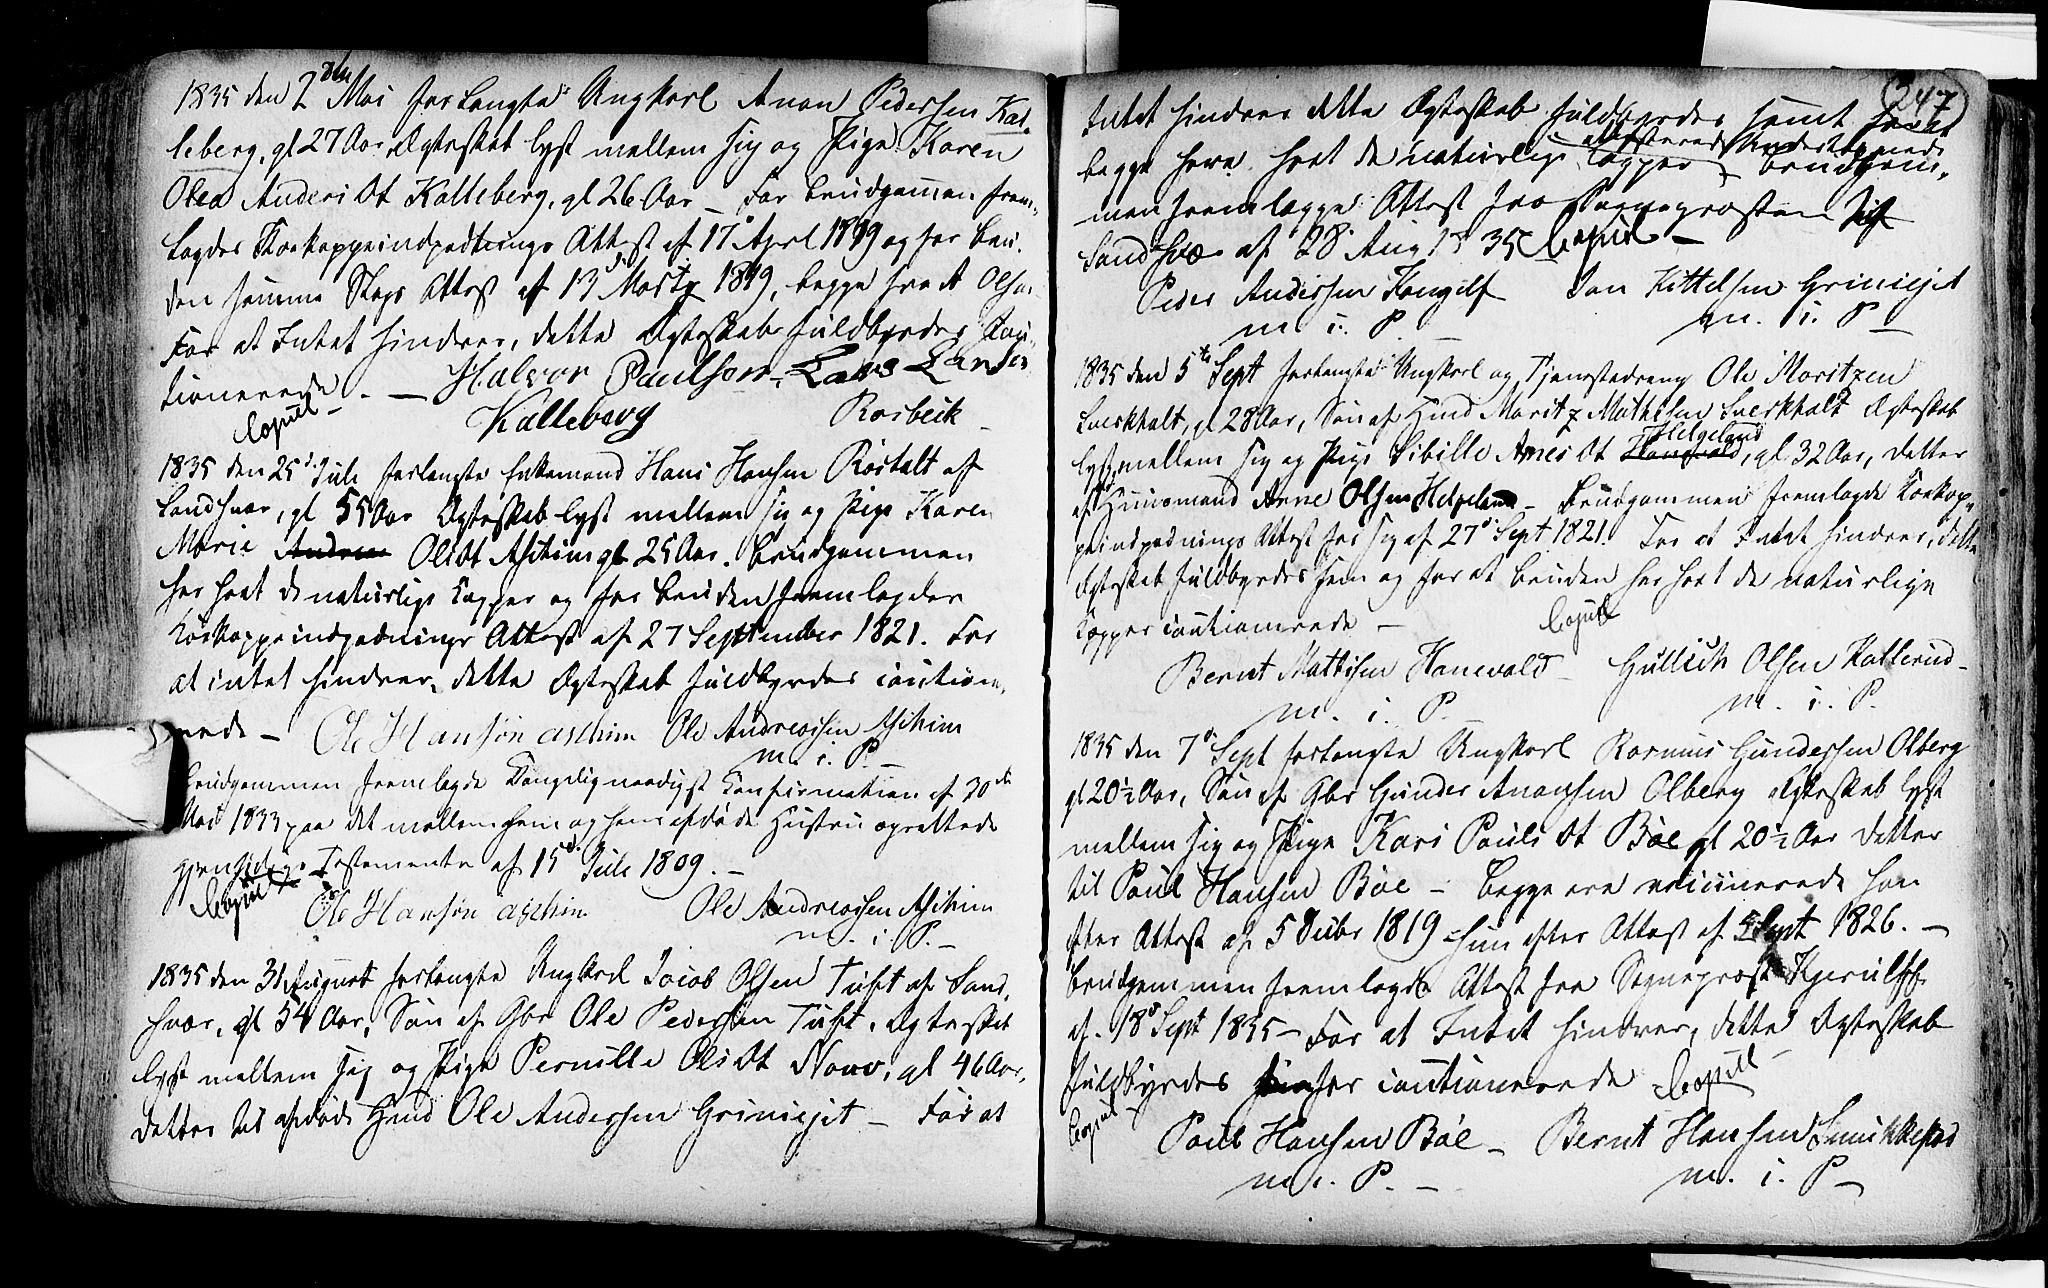 1835 den 2den Mai forlangte Ungkarl Anon Pedersen Kal-
leberg, gl 27 Aar, Ægteskab lyst mellem sig og Pige Karen
Olea Anders Dt Kalleberg, gl 26 Aar _ For brudgommen frem-
lagdes Koekoppeindpodtnings Attest af 17 Aprl 1819 og for bru-
den samme Slags Attest af 13 Martz 1819, begge fra A Olsen
For at Intet hindrer, dette Ægteskabs fuldbyrdes Cau-
tionerede. — Halvor Paulson, Lars Larsen
Copul Kalleberg Rosbeck
1835 den 25d Jule forlangte Enkemand Hans Hansen Røstalt af
Sandsvær, gl 55 Aar Ægteskab lyst mellem sig og Pige Karen
Marie Olsdt Aschim gl 25 Aar. brudgommen
har havt de naturlige Kopper og for bruden fremlagdes
Koekoppeindpodnings Attest af 27 September 1821. For
at intet hindrer, dette Ægteskab fuldbyrdes caution-
erede _ Ole Hansøn aschim Ole Andreassen Aschim
m. i. P. _
brudgommen fremlagde Kongelig naadigst Confirmation af 30te
Mai 1833 paa det mellem ham og hans afdøde Hustru oprettede
gjensidige Testamente af 15d Jule 1809. _
Copul Ole Hansøn aschim Ole Andreassen Aschim
m. i. P. _
1835 den 31 August forlangte Ungkarl Jacob Olsen Tuft af Sand-
svær, gl 54 Aar, Søn af Gbr Ole Pedersen Tuft, Ægteskab
lyst mellem sig og Pige Pernille Ols Dt Navr, gl 46 Aar,
datter til afdøde Hmd Ole Andersen Grinisejet _ For at
247
Intet hindrer dette Ægteskab fuldbyrdes samt
attesterede Undertegnede
begge have havt de naturlige Kopper brudgom-
men fremlagde Attest fra Sogneprosten
Sandsvær af 28 Aug 1835 Copul _
Peder Andersen Kongelf Jan Kittelsen Grinisejet
m i. P m. i. P _
1835 den 5te Sept forlangte Ungkarl og Tjenestedreng Ole Moritzen
Sverkhalt, gl 28 Aar, Søn af Hmd Moritz Mathisen Sverkhalt Ægteskab
Helgeland
lyst mellem sig og Pige Sibille Arnes Dt Hanevald, gl 32 Aar, datter
af Huusmand Arne Olsen Helgeland _ brudgommen fremlagde Koekop-
peindpodnings Attest for sig af 27d Sept 1821. For at Intet hindrer, dette
Ægteskab fuldbyrdes ham og for at bruden har havt de naturlige
Kopper cautionerede _ Copul
Bernt Mathisen Hanevald _ Gullich Olsen Kallerud _
m. i. P. m. i. P.
1835 den 7d Sept forlangte Ungkarl Rasmus Gundersen Olberg
gl 20½ Aar, Søn af Gbr Gunder Anonsen Olberg Ægteskab lyst
mellem sig og Pige Kari Pouls Dt Bøe gl 20½ Aar datter
til Poul Hansen Bøe _ begge ere vaccinerede han
efter Attest af 5 Octbr 1819 _ hun efter Attest af Sept 1826. _
brudgommen fremlagde Attest fra Sogneprost Kjerulff
af 18d Sept 1835 _ For at Intet hindrer, dette Ægteskab
fuldbyrdes cautionerede Copul _
Copul Poul Hansen Bøe _ Bernt Hansen Smukkestad
m. i. P. _ m. i. P _